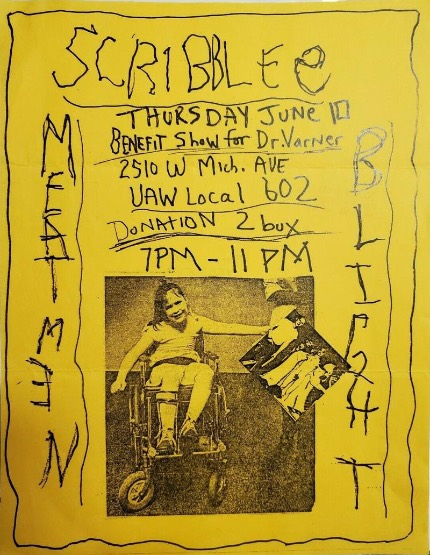 SCRIBBLEe
THURSDAY JUNE 10
BENEFIT Show for Dr. Varner
2510 W Mich. AVE
UAW Local 602
DONATION 2 bux
7PM - 11 PM
MEATMEN
BLIGHT